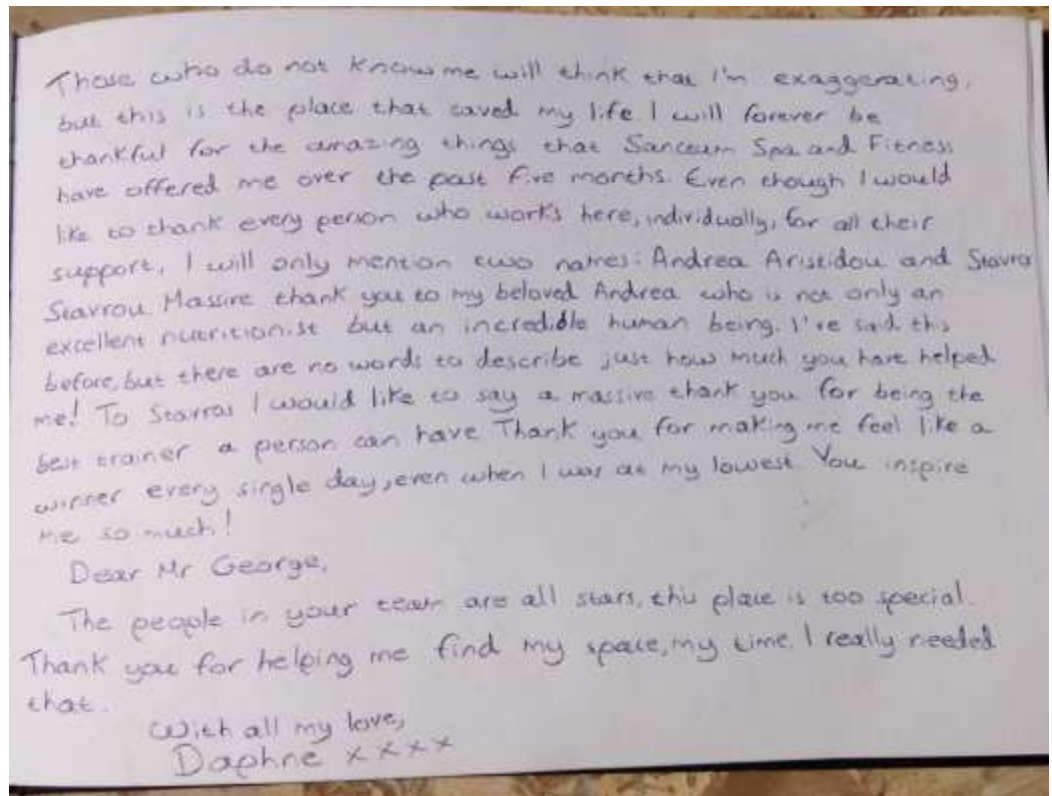 Those who do not know me will think that I'm exaggerating,
but this is the place that saved my life. I will forever be
thankful for the amazing things that Sanctum Spa and Fitness
have offered me over the past five months. Even though I would
like to thank every person who works here, individually, for all their
support, I will only mention two names: Andrea Aristidou and Stavro
Stavrou. Massive thank you to my beloved Andrea who is not only an
excellent nutritionist but an incredible human being. I've said this
before, but there are no words to describe just how much you have helped
me! To Stavros I would like to say a massive thank you for being the
best trainer a person can have. Thank you for making me feel like a
winner every single day, even when I was at my lowest. You inspire
me so much!
Dear Mr George,
The people in your team are all stars, this place is too special.
Thank you for helping me find my space, my time. I really needed
that.
With all my love,
Daphne xxxx